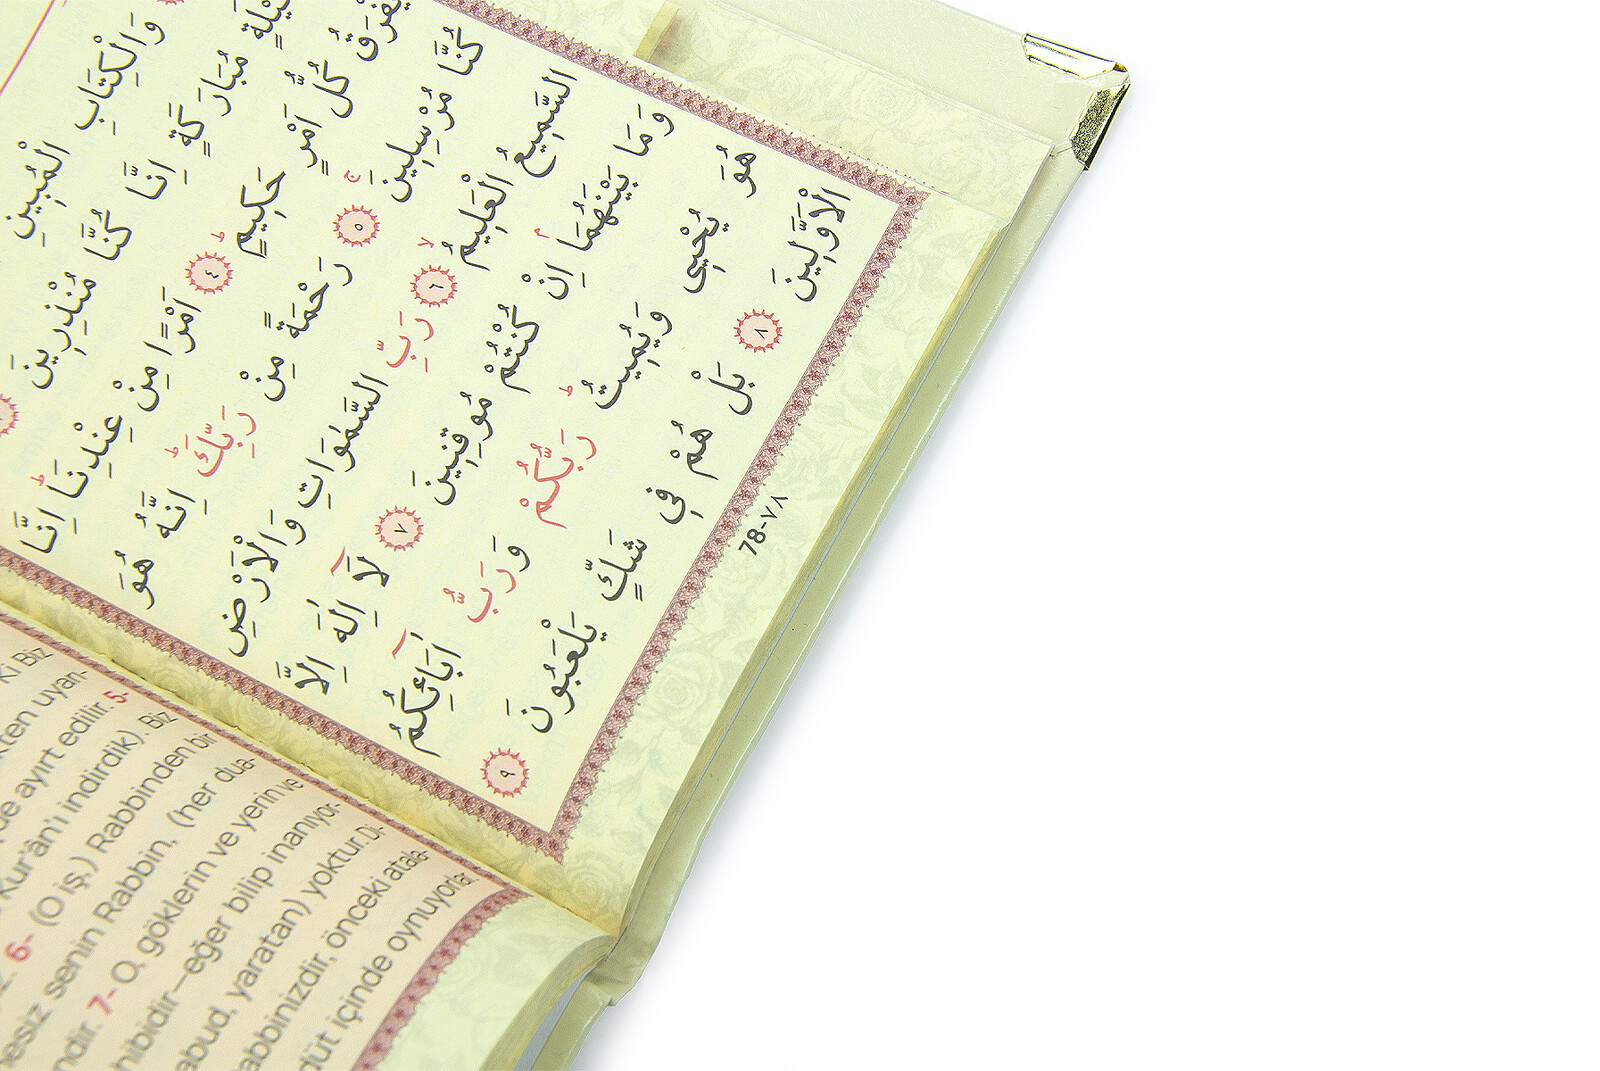 وَالْكِتَابِ الْمُبِينِ
مُبَارَكَةٍ اِنَّا كُنَّا مُنْذِرِينَ
يُفْرَقُ كُلُّ اَمْرٍ حَكِيمٍ ۜ ٤ اَمْرًا مِنْ عِنْدِنَا ۜ اِنَّا
كُنَّا مُرْسِلِينَ ۚ ٥ رَحْمَةً مِنْ رَبِّكَ ۜ اِنَّهُ هُوَ
السَّمِيعُ الْعَلِيمُ ۙ ٦ رَبِّ السَّمٰوَاتِ وَالْاَرْضِ
وَمَا بَيْنَهُمَا ۢ اِنْ كُنْتُمْ مُوقِنِينَ ٧ لَٓا اِلٰهَ اِلَّا
هُوَ يُحْيِي وَيُمِيتُ ۜ رَبُّكُمْ وَرَبُّ اٰبَٓائِكُمُ
الْاَوَّلِينَ ٨ بَلْ هُمْ فِي شَكٍّ يَلْعَبُونَ ٩
78-٧٨
Ki Biz
kten uyan-
de ayırt edilir. 5-
Kur'ân'ı indirdik). Biz
z. 6- (O iş,) Rabbinden bir
nesiz senin Rabbin, (her dua-
ndir. 7- O, göklerin ve yerin ve
hibidir—eğer bilip inanıyor-
abud, yaratan) yoktur. Di-
abbinizdir, önceki atala-
düt içinde oynuyorlar.